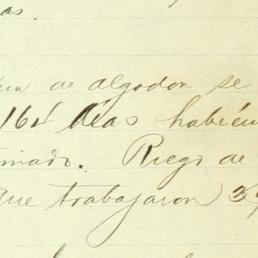 as.
de algodon se
162 dias habién
inado. Riego de
que trabajaron 39